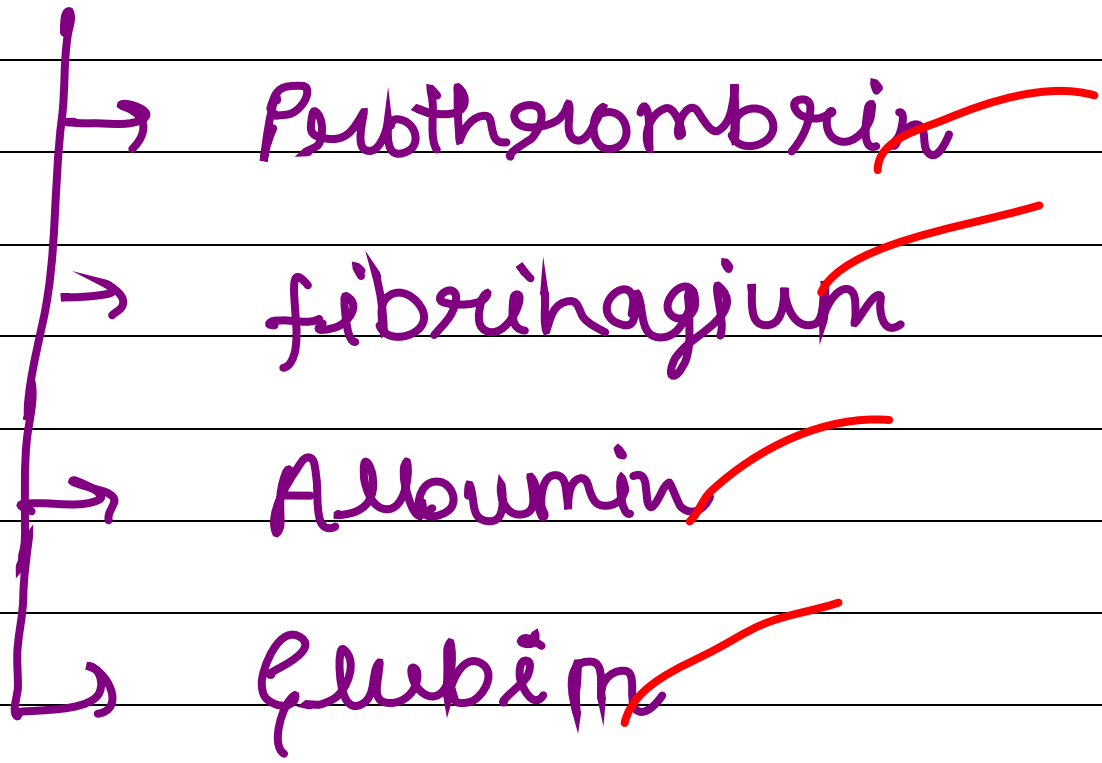 Prothrombrin
fibrinagium
Albumin
Glubim